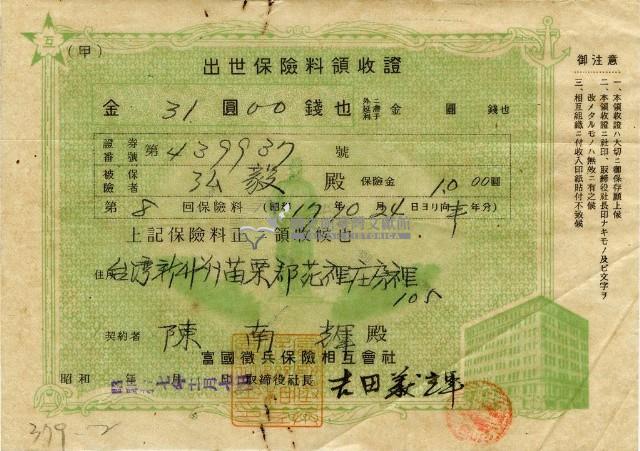 互
(甲)
出世保險料領收證
金 31 圓 00 錢也 外ニ延滯利子 金 圓 錢也
證券番號 第 439937 號
被保險者 弘毅 殿 保險金 1,000圓
第 8 回保險料 (昭和 17年 10月 24日ヨリ向 年 年分)
上記保險料正ニ領收候也
住所 台湾新竹州苗栗郡苑裡庄苑裡
105
契約者 陳南輝 殿
富國徵兵保險相互會社
昭和 年 月 日 取締役社長 吉田義輝
御注意
一、本領收證ハ大切ニ御保存願上候
二、本領收證ニ社印、取締役社長印ナキモノ及ビ文字ヲ
改メタルモノハ無效ニ有之候
三、相互組織ニ付收入印紙貼付不致候
379-2